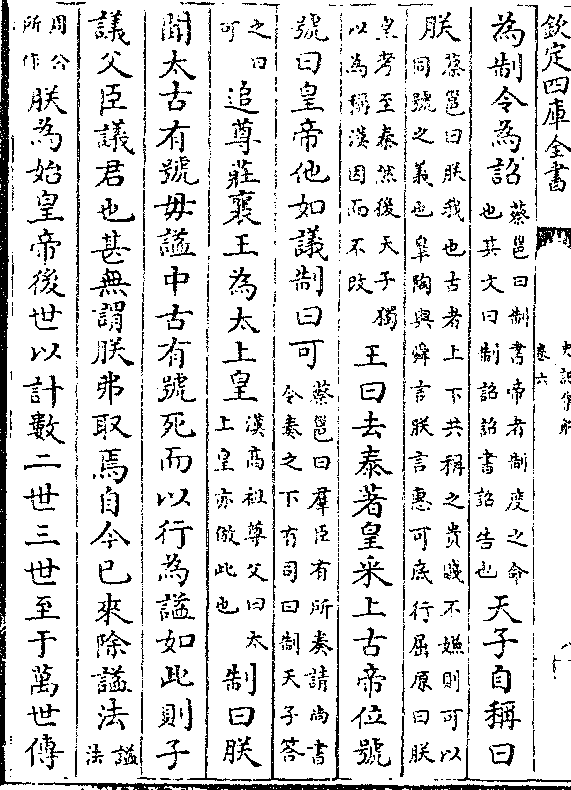 欽定四庫全書
史記集解
卷六
為制令為詔蔡邕曰制書帝者制度之命也其文曰制詔詔書詔告也天子自稱曰
朕蔡邕曰朕我也古者上下共稱之貴賤不嫌則可以同號之義也臯陶與舜言朕言惠可底行屈原曰朕
皇考至秦然後天子獨以為稱漢因而不改王曰去泰著皇采上古帝位號
號曰皇帝他如議制曰可蔡邕曰羣臣有所奏請尚書令奏之下有司曰制天子答
之曰可追尊莊襄王為太上皇漢高祖尊父曰太上皇亦倣此也制曰朕
聞太古有號毋諡中古有號死而以行為諡如此則子
議父臣議君也甚無謂朕弗取焉自今已來除諡法諡法
周公所作朕為始皇帝後世以計數二世三世至于萬世傳